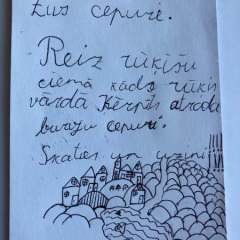 cepurē.
Reiz rūķīšu
ciemā kāds rūķis
vārdā Ķērpis atrada
burvju cepuri.
Skaties un uzzini